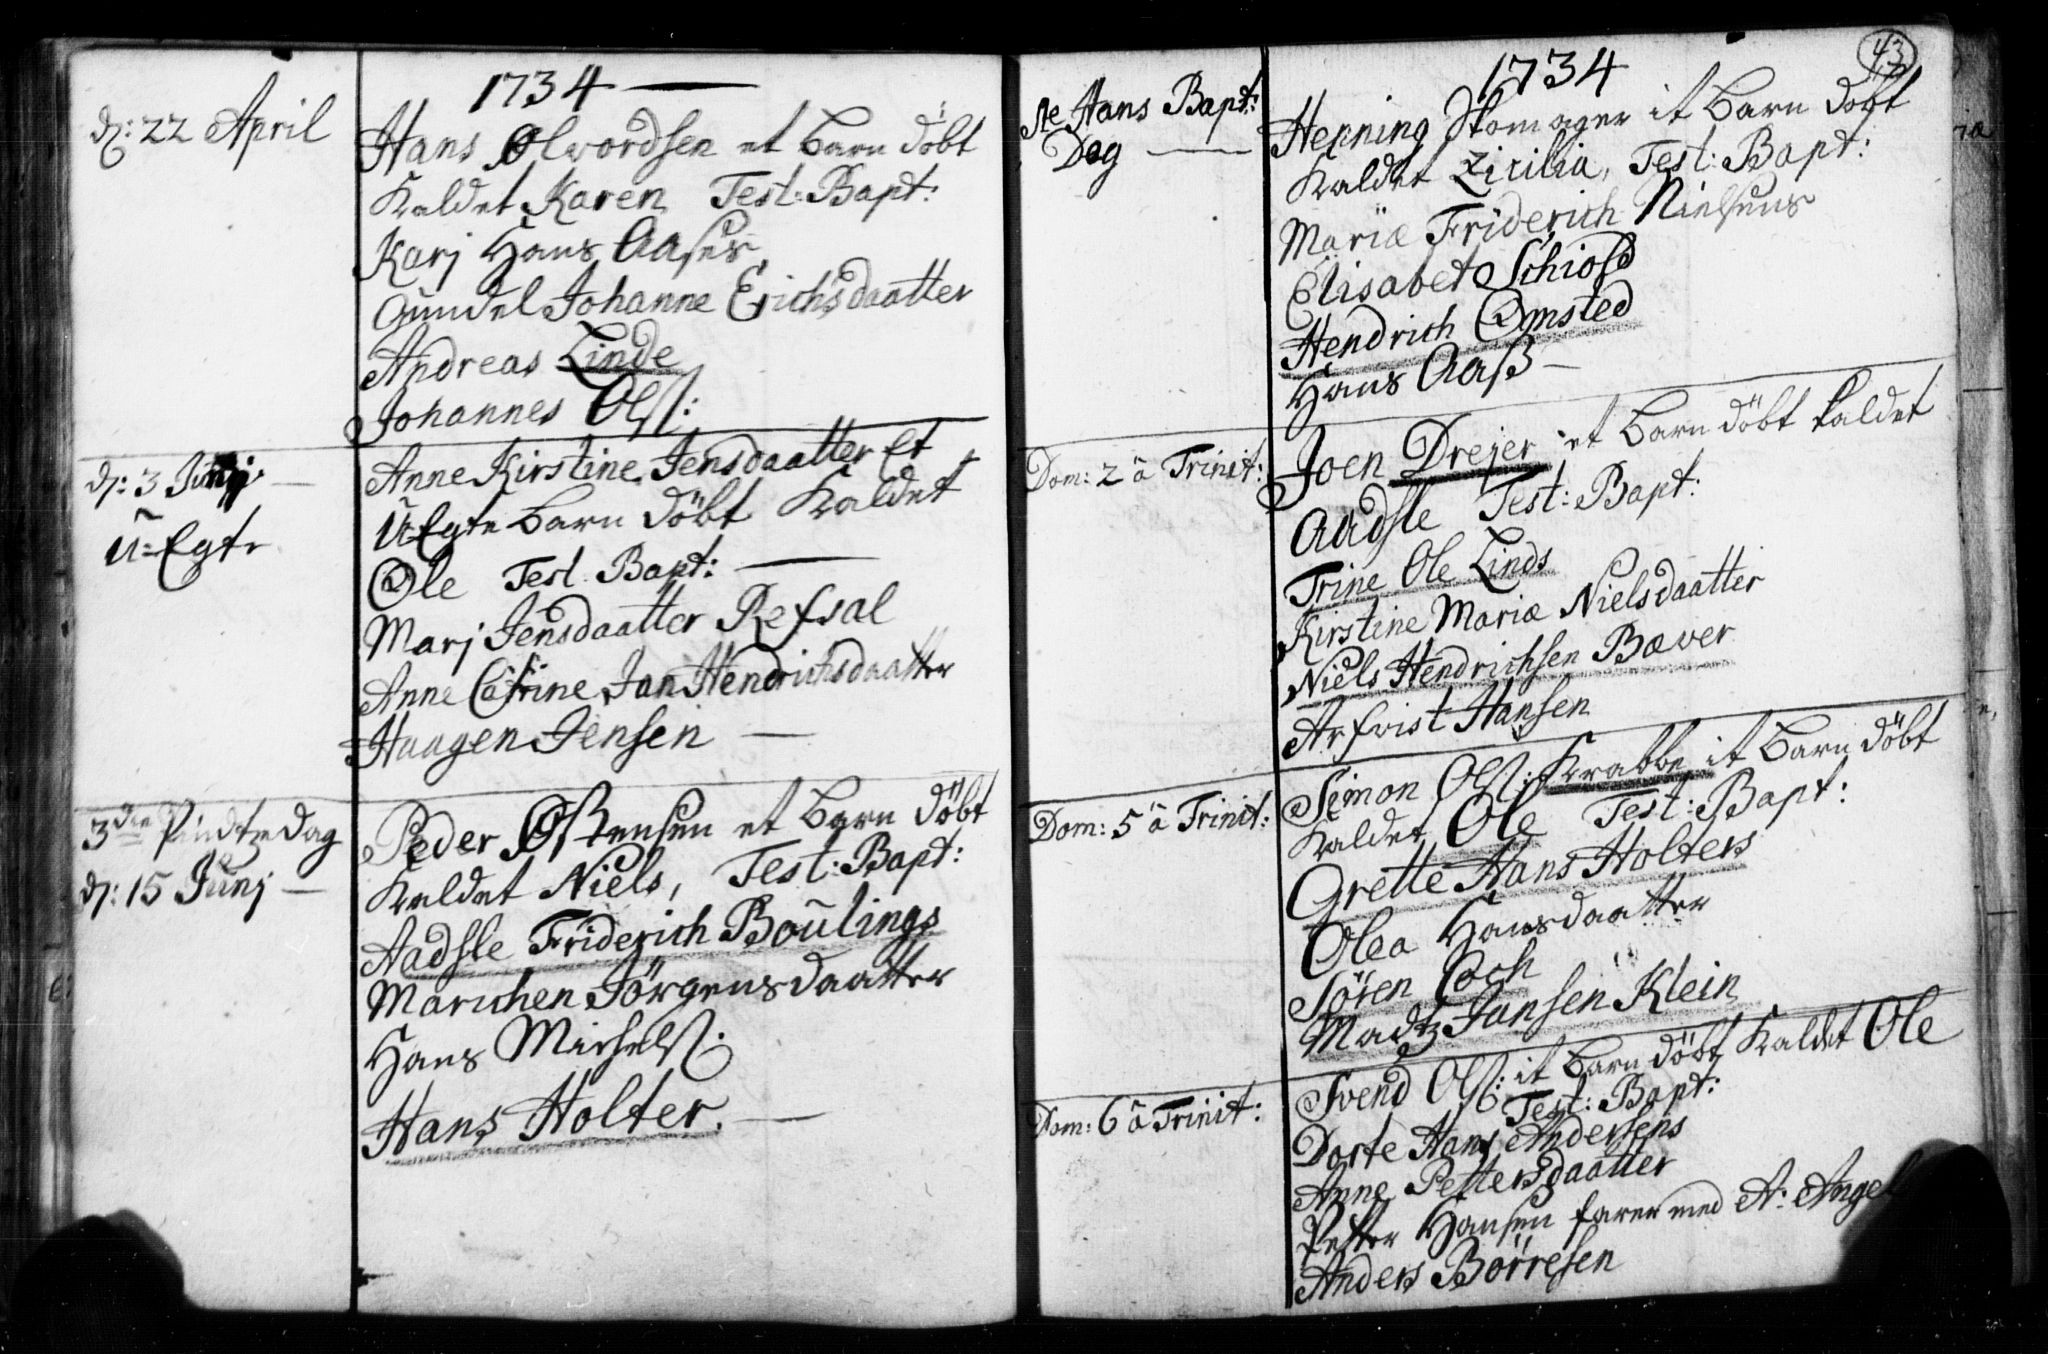 1734
d: 22 April
Hans Olvordsen et barn döbt
kaldet Karen Test: Bapt:
Karj Hans Aases
Gundel Johanne Erichsdaatter
Andreas Linde
Johannes Olss:
d: 3 Junj
U=Egte
Anne Kirstine Jensdaatter Et
U=Egte barn döbt kaldet
Ole Test. Bapt:
Marj Jensdaatter Refsal
Anne Catrine Jan Hendrichsdaatter
Haagen Jensen
3die Pindtzedag
d: 15 Junj
Peder Ostensen et barn döbt
kaldet Niels, Test: Bapt:
Aadsle Friderich Boulings
Marichen Jörgensdaatter
Hans Michelss:
Hans Holter.
43
1734
Ste Hans Bapt:
Dag
Henning Skomager it barn döbt
kaldet Zicilia, Test: Bapt:
Mariæ Friderich Nielsens
Elisabet Schiold
Hendrich Omsted
Hans Aass
Dom: 2 a Trinit:
Joen Drejer et barn döbt kaldet
Aadsle Test: Bapt:
Trine Ole Linds
Kirstine Mariæ Nielsdaatter
Niels Hendrichsen Bæver
Arfvist Hansen
Dom: 5 a Trinit:
Simon Olss: Krabbe it barn döbt
kaldet Ole Test: Bapt:
Grette Hans Holters
Olea Hansdaatter
Sören Coch
Madtz Jansen Klein
Dom: 6 a Trinit:
Svend Olss: it barn döbt kaldet Ole
Test: Bapt:
Dorte Hans Andersens
Anne Pettersdaatter
Petter Hansen farer med A: Angel
Anders Börresen